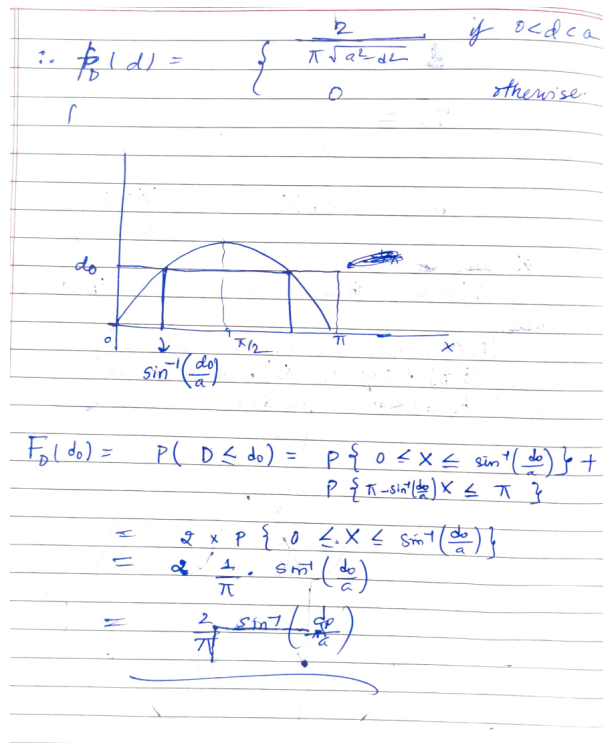 ∴ p_D(d) = { 2 / (π √a²-d²) if 0<d<a
0 otherwise.
do
0 π/2 π x
sin⁻¹(do/a)
F_D(do) = P( D ≤ do) = P{ 0 ≤ X ≤ sin⁻¹(do/a)} +
P{π-sin⁻¹(do/a) X ≤ π}
= 2 × P{ 0 ≤ X ≤ sin⁻¹(do/a)}
= 2 · 1/π · sin⁻¹(do/a)
= 2/π sin⁻¹(do/a)